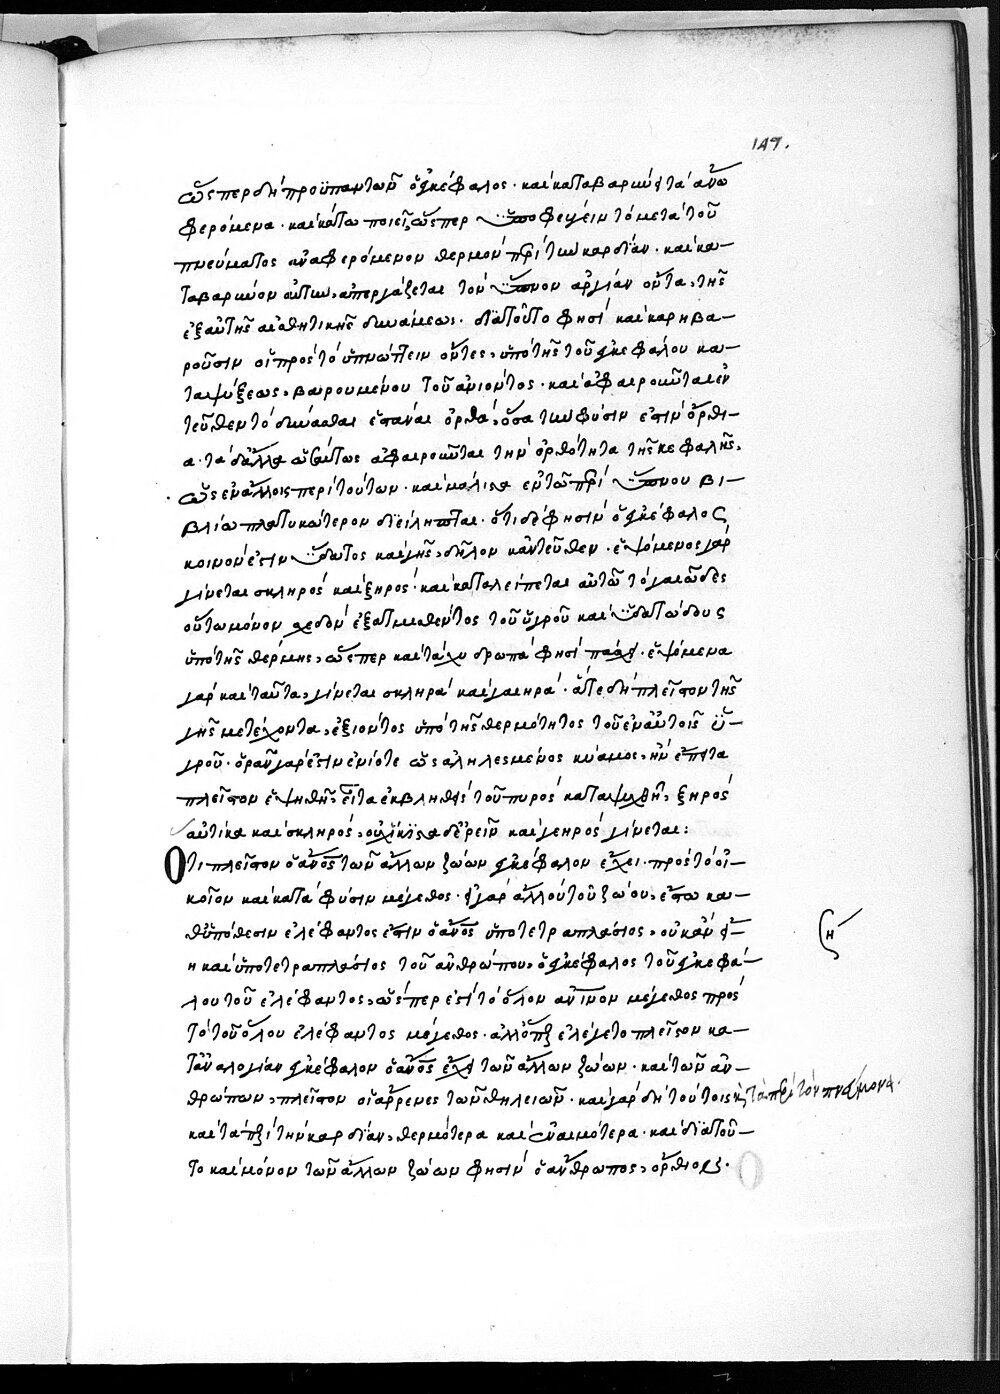 147.
ὥσπερ δὴ προϋπαντῶν ὁ ἐγκέφαλος· καὶ καταβαρύνει τὰ ἄνω
φερόμενα· καὶ κάτω ποιεῖ ὥσπερ ὑποφεύγειν τὸ μετὰ τοῦ
πνεύματος ἀναφερόμενον θερμὸν περὶ τὴν καρδίαν· καὶ κα-
ταβαρῦνον οὕτως, ἀπεργάζεται τὸν ὕπνον ἀργίαν ὄντα, τῆς
ἐξ αὐτῆς αἰσθητικῆς δυνάμεως. διὰ τοῦτο φησὶ καὶ καρηβα-
ροῦσιν οἱ πρὸς τὸ ὑπνώττειν ὄντες, ὑπὸ τῆς τοῦ ἐγκεφάλου κα-
ταψύξεως, βαρουμένου τοῦ ἀνιόντος· καὶ ἀφαιροῦνται ἐν
τεῦθεν τὸ δύνασθαι ἐπᾶναι ὀρθά, ὅσα τὴν φύσιν ἐστὶν ὄρθι-
α· τὰ δ' ἄλλα ὡσαύτως ἀφαιροῦνται τὴν ὀρθότητα τῆς κεφαλῆς,
ὡς ἐν ἄλλοις περὶ τούτων· καὶ μάλιστα ἐν τῷ περὶ ὕπνου βι-
βλίῳ πλατυκώτερον διείληπται. ὅτι δέ φησιν ὁ ἐγκέφαλος
κοινόν ἐστιν ὕδατος καὶ γῆς, δῆλον κἀντεῦθεν. ἑψόμενος γὰρ
γίνεται σκληρὸς καὶ ξηρός· καὶ καταλείπεται αὐτῷ τὸ γαιῶδες
οὕτω μόνον σχεδὸν ἐξατμισθέντος τοῦ ὑγροῦ καὶ ὑδατώδους
ὑπὸ τῆς θέρμης, ὥσπερ καὶ τὰ χεδροπὰ φησὶ πάσχει. ἑψόμενα
γὰρ καὶ ταῦτα, γίνεται σκληρὰ καὶ γαιηρά· ἅτε δὴ πλεῖστον τῆς
γῆς μετέχοντα, ἐξιόντος ὑπὸ τῆς θερμότητος τοῦ ἐν αὐτοῖς ὑ-
γροῦ. ὁρᾶν γάρ ἐστιν ἐνίοτε ὡς ἀληλεσμένος κύαμος, ἢν ἔπειτα
πλεῖστον ἑψηθῇ, εἶτα ἐκβληθεὶς τοῦ πυρὸς καταψυχθῇ, ξηρὸς
αὐτίκα καὶ σκληρός, οὐχ ἥκιστα δ' ἐρεῖν καὶ γεηρὸς γίνεται:
Ὅτι πλεῖστον ὁ ἄνος τῶν ἄλλων ζώων ἐγκέφαλον ἔχει· πρὸς τὸ οἰ-
κεῖον καὶ κατὰ φύσιν μέγεθος· εἰ γὰρ ἄλλου του ζώου, ἔστω κα-
θ' ὑπόθεσιν ἐλέφαντος ἐστὶν ὁ ἄνος ὑποτετραπλάσιος, οὐκ ἂν εἴ-
η καὶ ὑποτετραπλάσιος τοῦ ἀνθρώπου, ὁ ἐγκέφαλος τοῦ ἐγκεφά-
λου τοῦ ἐλέφαντος, ὥσπερ ἐστὶ τὸ ὅλον ἀνινον μέγεθος πρὸς
τὸ τοῦ ὅλου ἐλέφαντος μέγεθος· ἀλλ' ὅπερ ἐλέγετο πλεῖστον κα-
τ' ἀναλογίαν ἐγκέφαλον ὁ ἄνος ἔχει τῶν ἄλλων ζώων· καὶ τῶν ἀν-
θρώπων, πλεῖστον οἱ ἄρρενες τῶν θηλειῶν· καὶ γὰρ δὴ τούτοις καὶ τὰ περὶ τὸν πνεύμονα.
καὶ τὰ περὶ τὴν καρδίαν, θερμότερα καὶ ἐναιμότερα· καὶ διὰ τοῦ-
το καὶ μόνον τῶν ἄλλων ζώων φησὶν ὁ ἄνθρωπος, ὄρθιος.